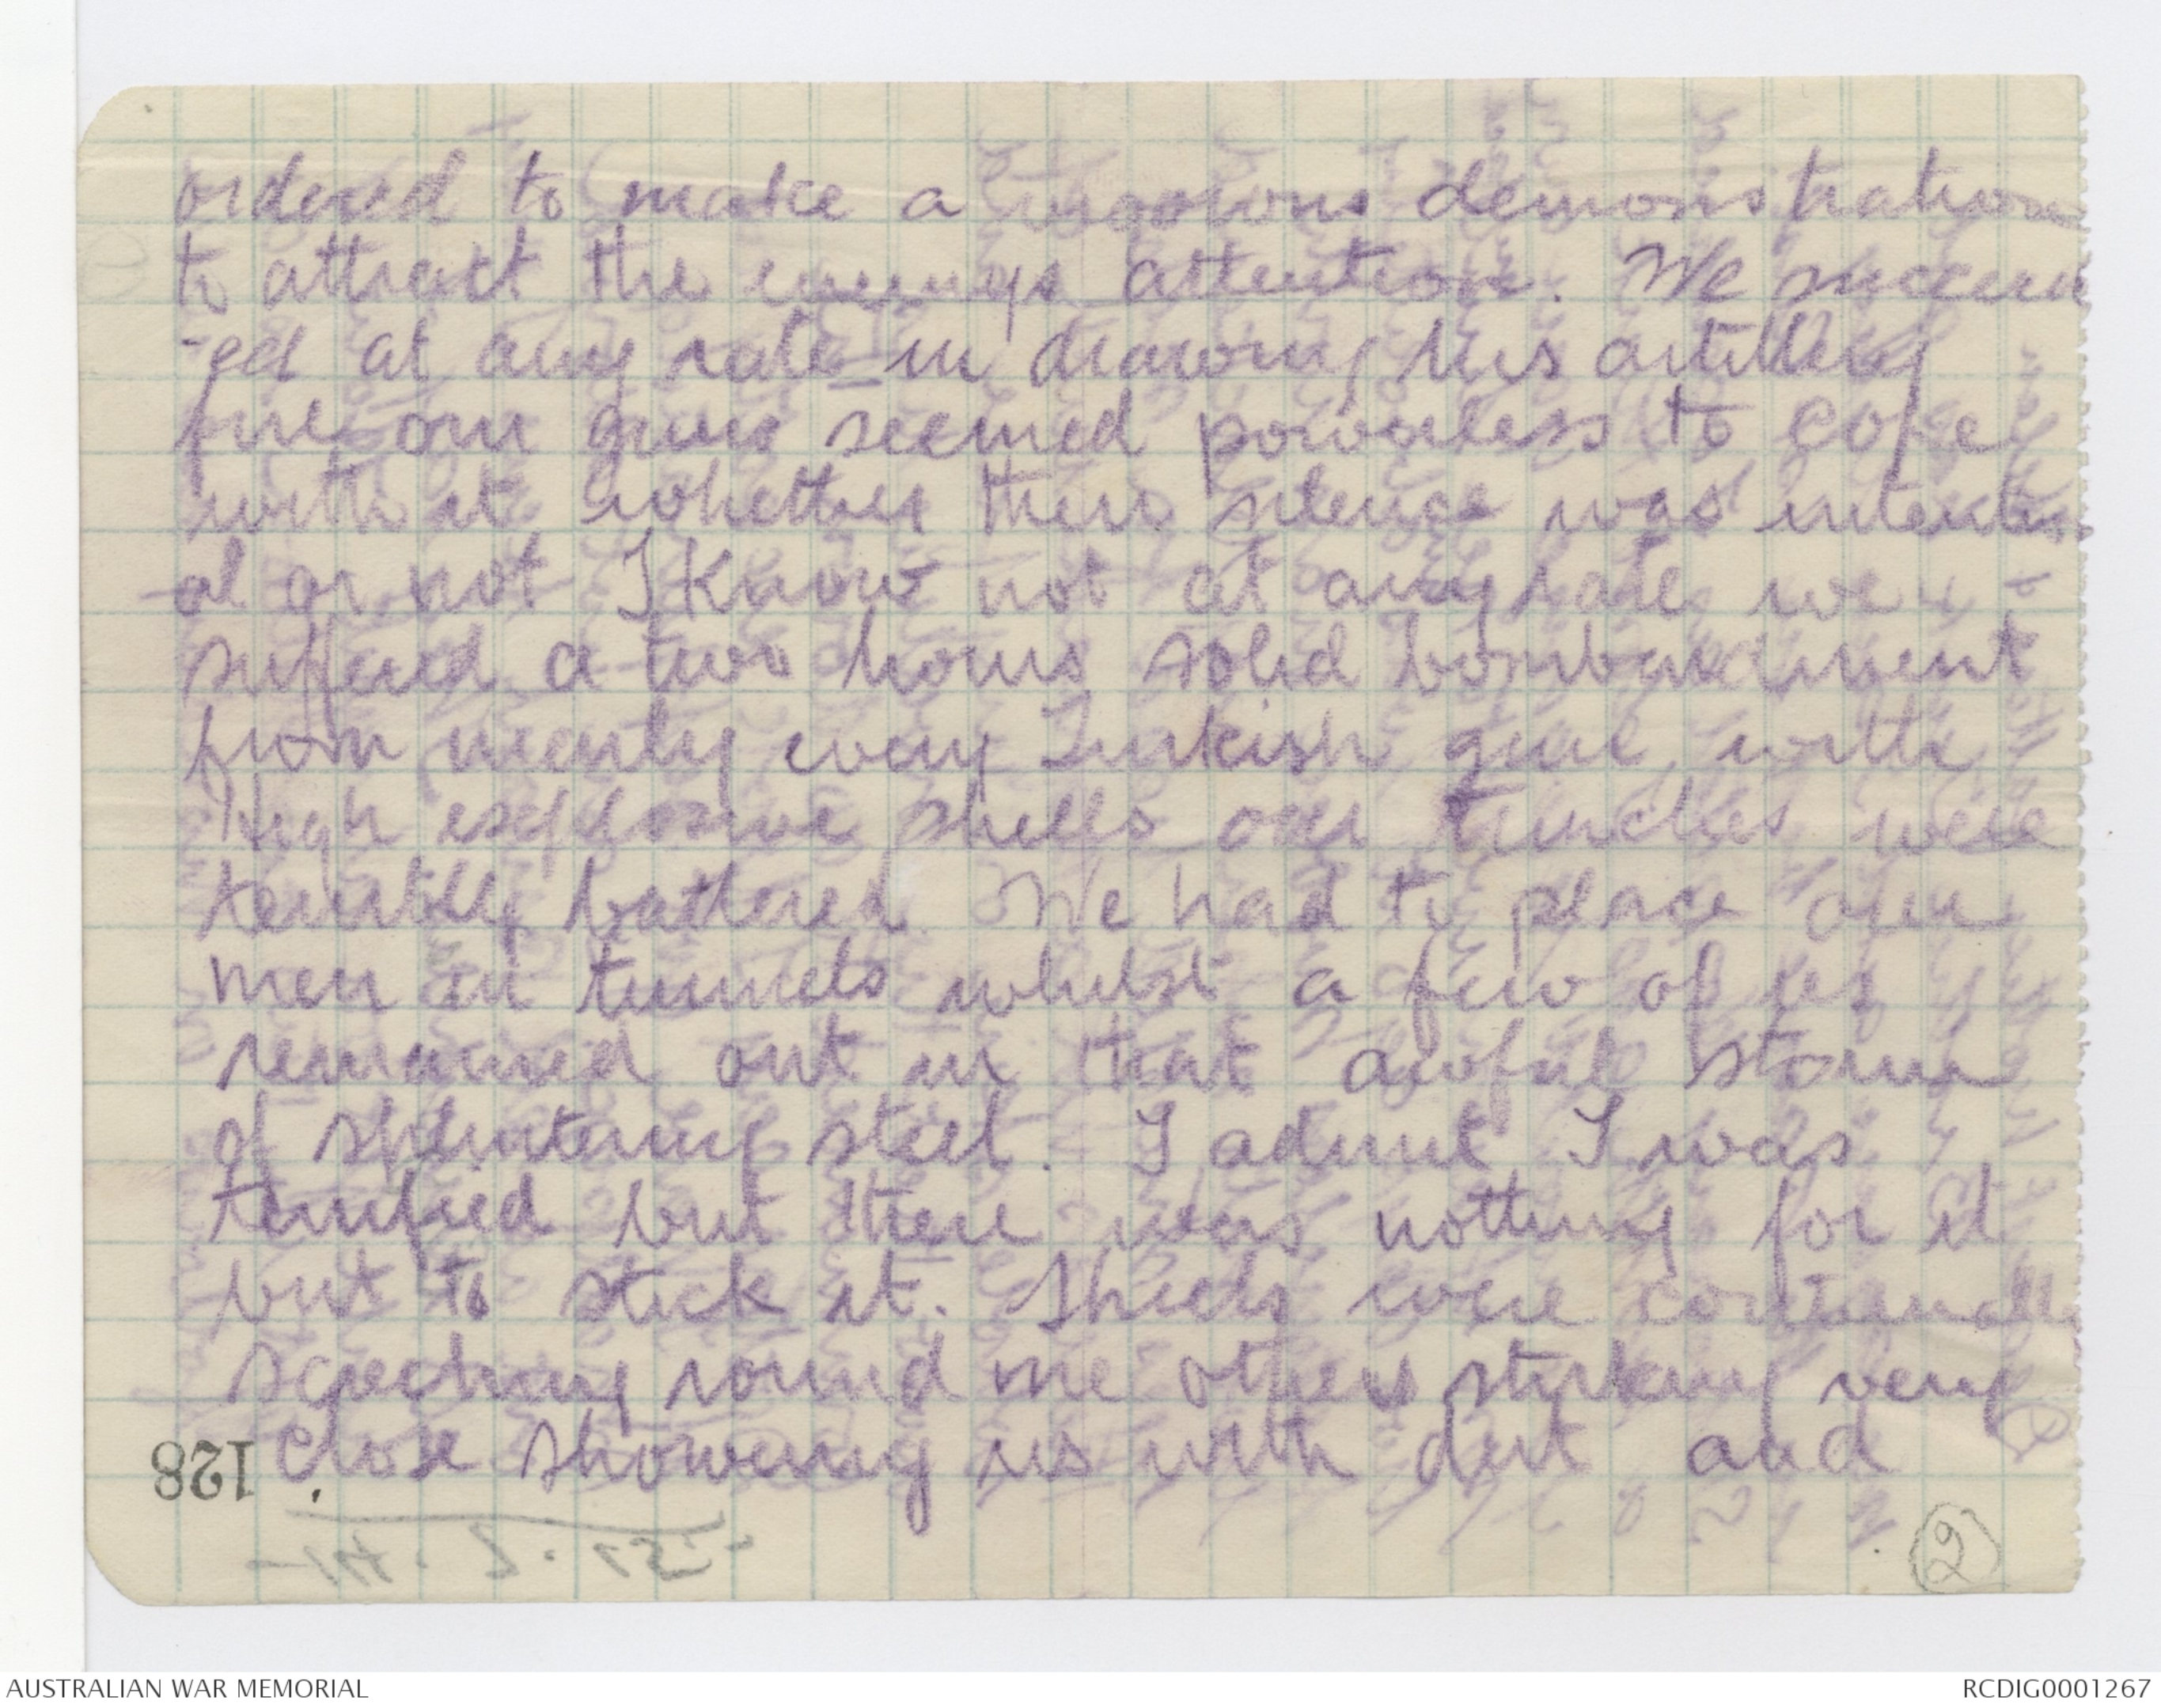 ordered to make a vigorous demonstration
to attract the enemys attention. We succeed
-ed at any rate in drawing his artillery
fire our guns seemed powerless to cope
with it whether their silence was intention
-al or not I know not at any rate we
suffered a two hours solid bombardment
from nearly every Turkish gun with
High explosive shells our trenches were
terribly battered. We had to place our
men in tunnels whilst a few of us
remained out in that awful storm
of splintering steel. I admit I was
terrified but there was nothing for it
but to stick it. Shells were continually
screeching round me others striking very
close showering us with dirt and
128
2
AUSTRALIAN WAR MEMORIAL
RCDIG0001267